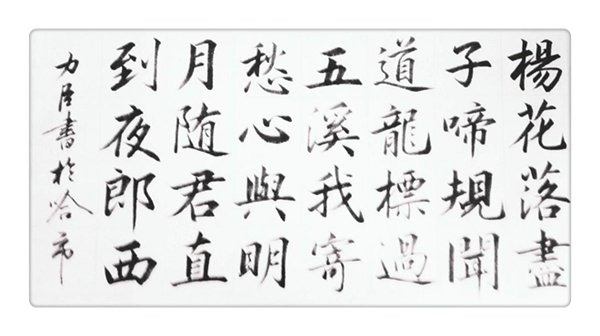 楊花落盡
子啼規聞
道龍標過
五溪我寄
愁心與明
月随君直
到夜郎西
力臣書於哈市